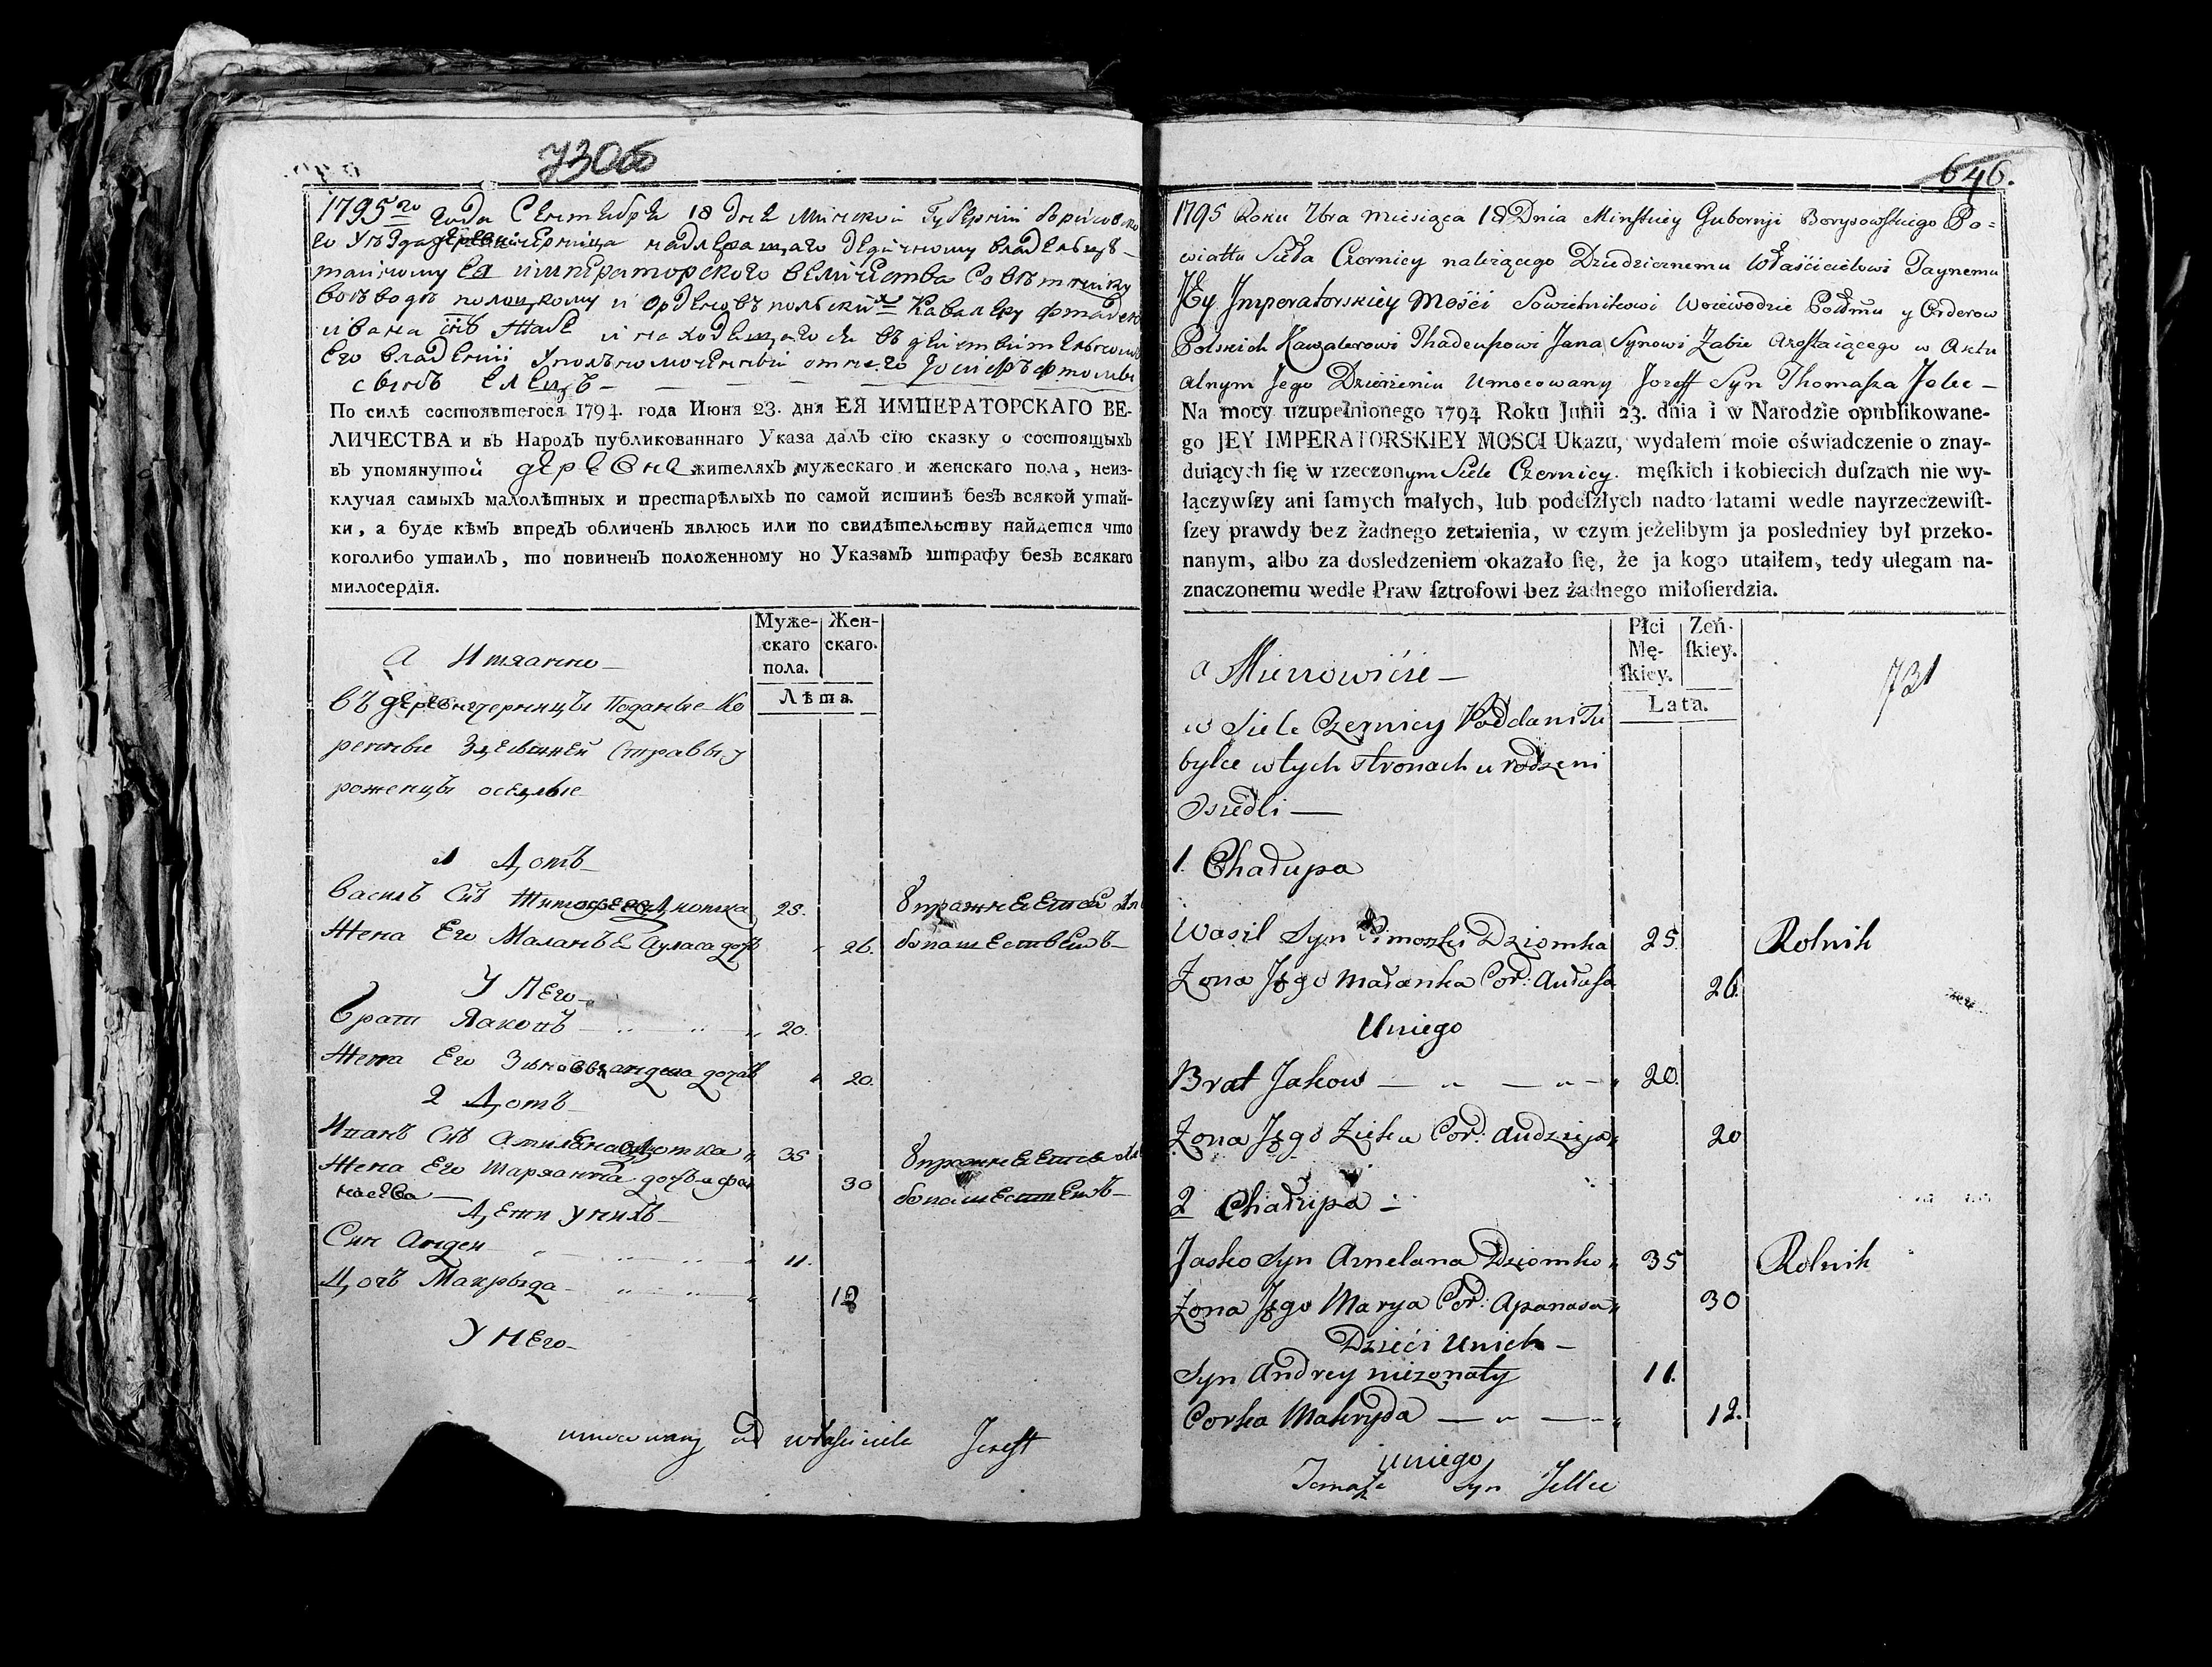 730об
1795го года Сентебре 18 дне Минской Губернии Борисовско
го Уезда деревни Черница надлежащаго Дедичному владельцу
тайному Ея императорского величества Советнику
воеводе полоцкому и Орденовъ польских Кавалеру фтадею
ивана снъ Жабе и находещагося въ действительномъ
Его владении Уполномоченный от него Іосифъ фтомы
сынъ Елецъ
По силѣ состоявшегося 1794. года Июня 23. дня ЕЯ ИМПЕРАТОРСКАГО ВЕ-
ЛИЧЕСТВА и въ Народъ публикованнаго Указа далъ сїю сказку о состоящыхъ
въ упомянутой деревне жителяхъ мужескаго и женскаго пола, неиз-
ключая самыхъ малолѣтныхъ и престарѣлыхъ по самой истинѣ безъ всякой утай-
ки, а буде кѣмъ впредъ обличенъ явлюсь или по свидѣтельству найдется что
коголибо утаилъ, то повиненъ положенному по Указамъ штрафу безъ всякаго
милосердїя.
Муже- Жен-
скаго скаго.
пола.
Лѣта.
А Имянно
въ деревне Чернице Поданые Ко
ренные Здешней Справы у
роженцы оселые
1 Домъ
Василъ Снъ Тимофея Дюмка 25. Упражнеется хле
Жена Его Маланъе Ауласа дочъ 26. бопашествемъ
У Него
братъ Яковъ 20.
Жена Его Зиновья андрея дочъ 20.
2 Домъ
Иванъ Снъ Амиляна Дюмка 35 Упражнеется хле
Жена Его Маряанна дочъ афа 30 бопашествемъ
насева
Дети у нихъ
Сын Андрей 11.
Дочъ Макрыда 12
У Него
umocowany od właściciela Jozeff
646.
1795 Roku 7bra miesiąca 18 Dnia Minskiey Gubernji Borysowskiego Po=
wiatu Sieła Czernicy należącego Dziedzicznemu Właścicielowi Taynemu
JEy Imperatorskiey Mości Sowietnikowi Woiewodzie Połkmu y Orderow
Polskich Kawalerowi Thadeuszowi Jana Synowi Żabie Azostaiącego w Aktu
alnym Jego Dzierżeniu Umocowany Jozeff Syn Thomasza Jelec —
Na mocy uzupełnionego 1794 Roku Junii 23. dnia i w Narodzie opublikowane-
go JEY IMPERATORSKIEY MOSCI Ukazu, wydałem moie oświadczenie o znay-
duiących ſię w rzeczonym Siele Czernicy. męſkich i kobiecich duſzach nie wy-
łączywſzy ani ſamych małych, lub podeſzłych nadto latami wedle nayrzeczewiſt-
ſzey prawdy bez żadnego zetaienia, w czym jeżelibym ja posledniey był przeko-
nanym, albo za dosledzeniem okazało ſię, że ja kogo utaiłem, tedy ulegam na-
znaczonemu wedle Praw ſztrofowi bez żadnego miłoſierdzia.
Płci Zeń-
Mę- ſkiey.
ſkiey.
Lata.
731
a Mienowićie —
w Siele Czernicy Poddani Tu
bylce w tych stronach urodzeni
Osiedli —
1. Chałupa
Wasil Syn Timoszki Dziomka 25. Rolnik
Żona Jego Małanka Cor: Aułasa 26.
Uniego
Brat Jakow 20.
Żona Jego Zieńka Cor: Andzieja 20
2 Chałupa
Jasko Syn Amelana Dziomko 35 Rolnik
Żona Jego Marya Cor: Apanasa 30
Dzieći Unich —
Syn Andrey nieżonaty 11.
Corka Makryda 12.
Uniego
Tomasza Syn Jellec